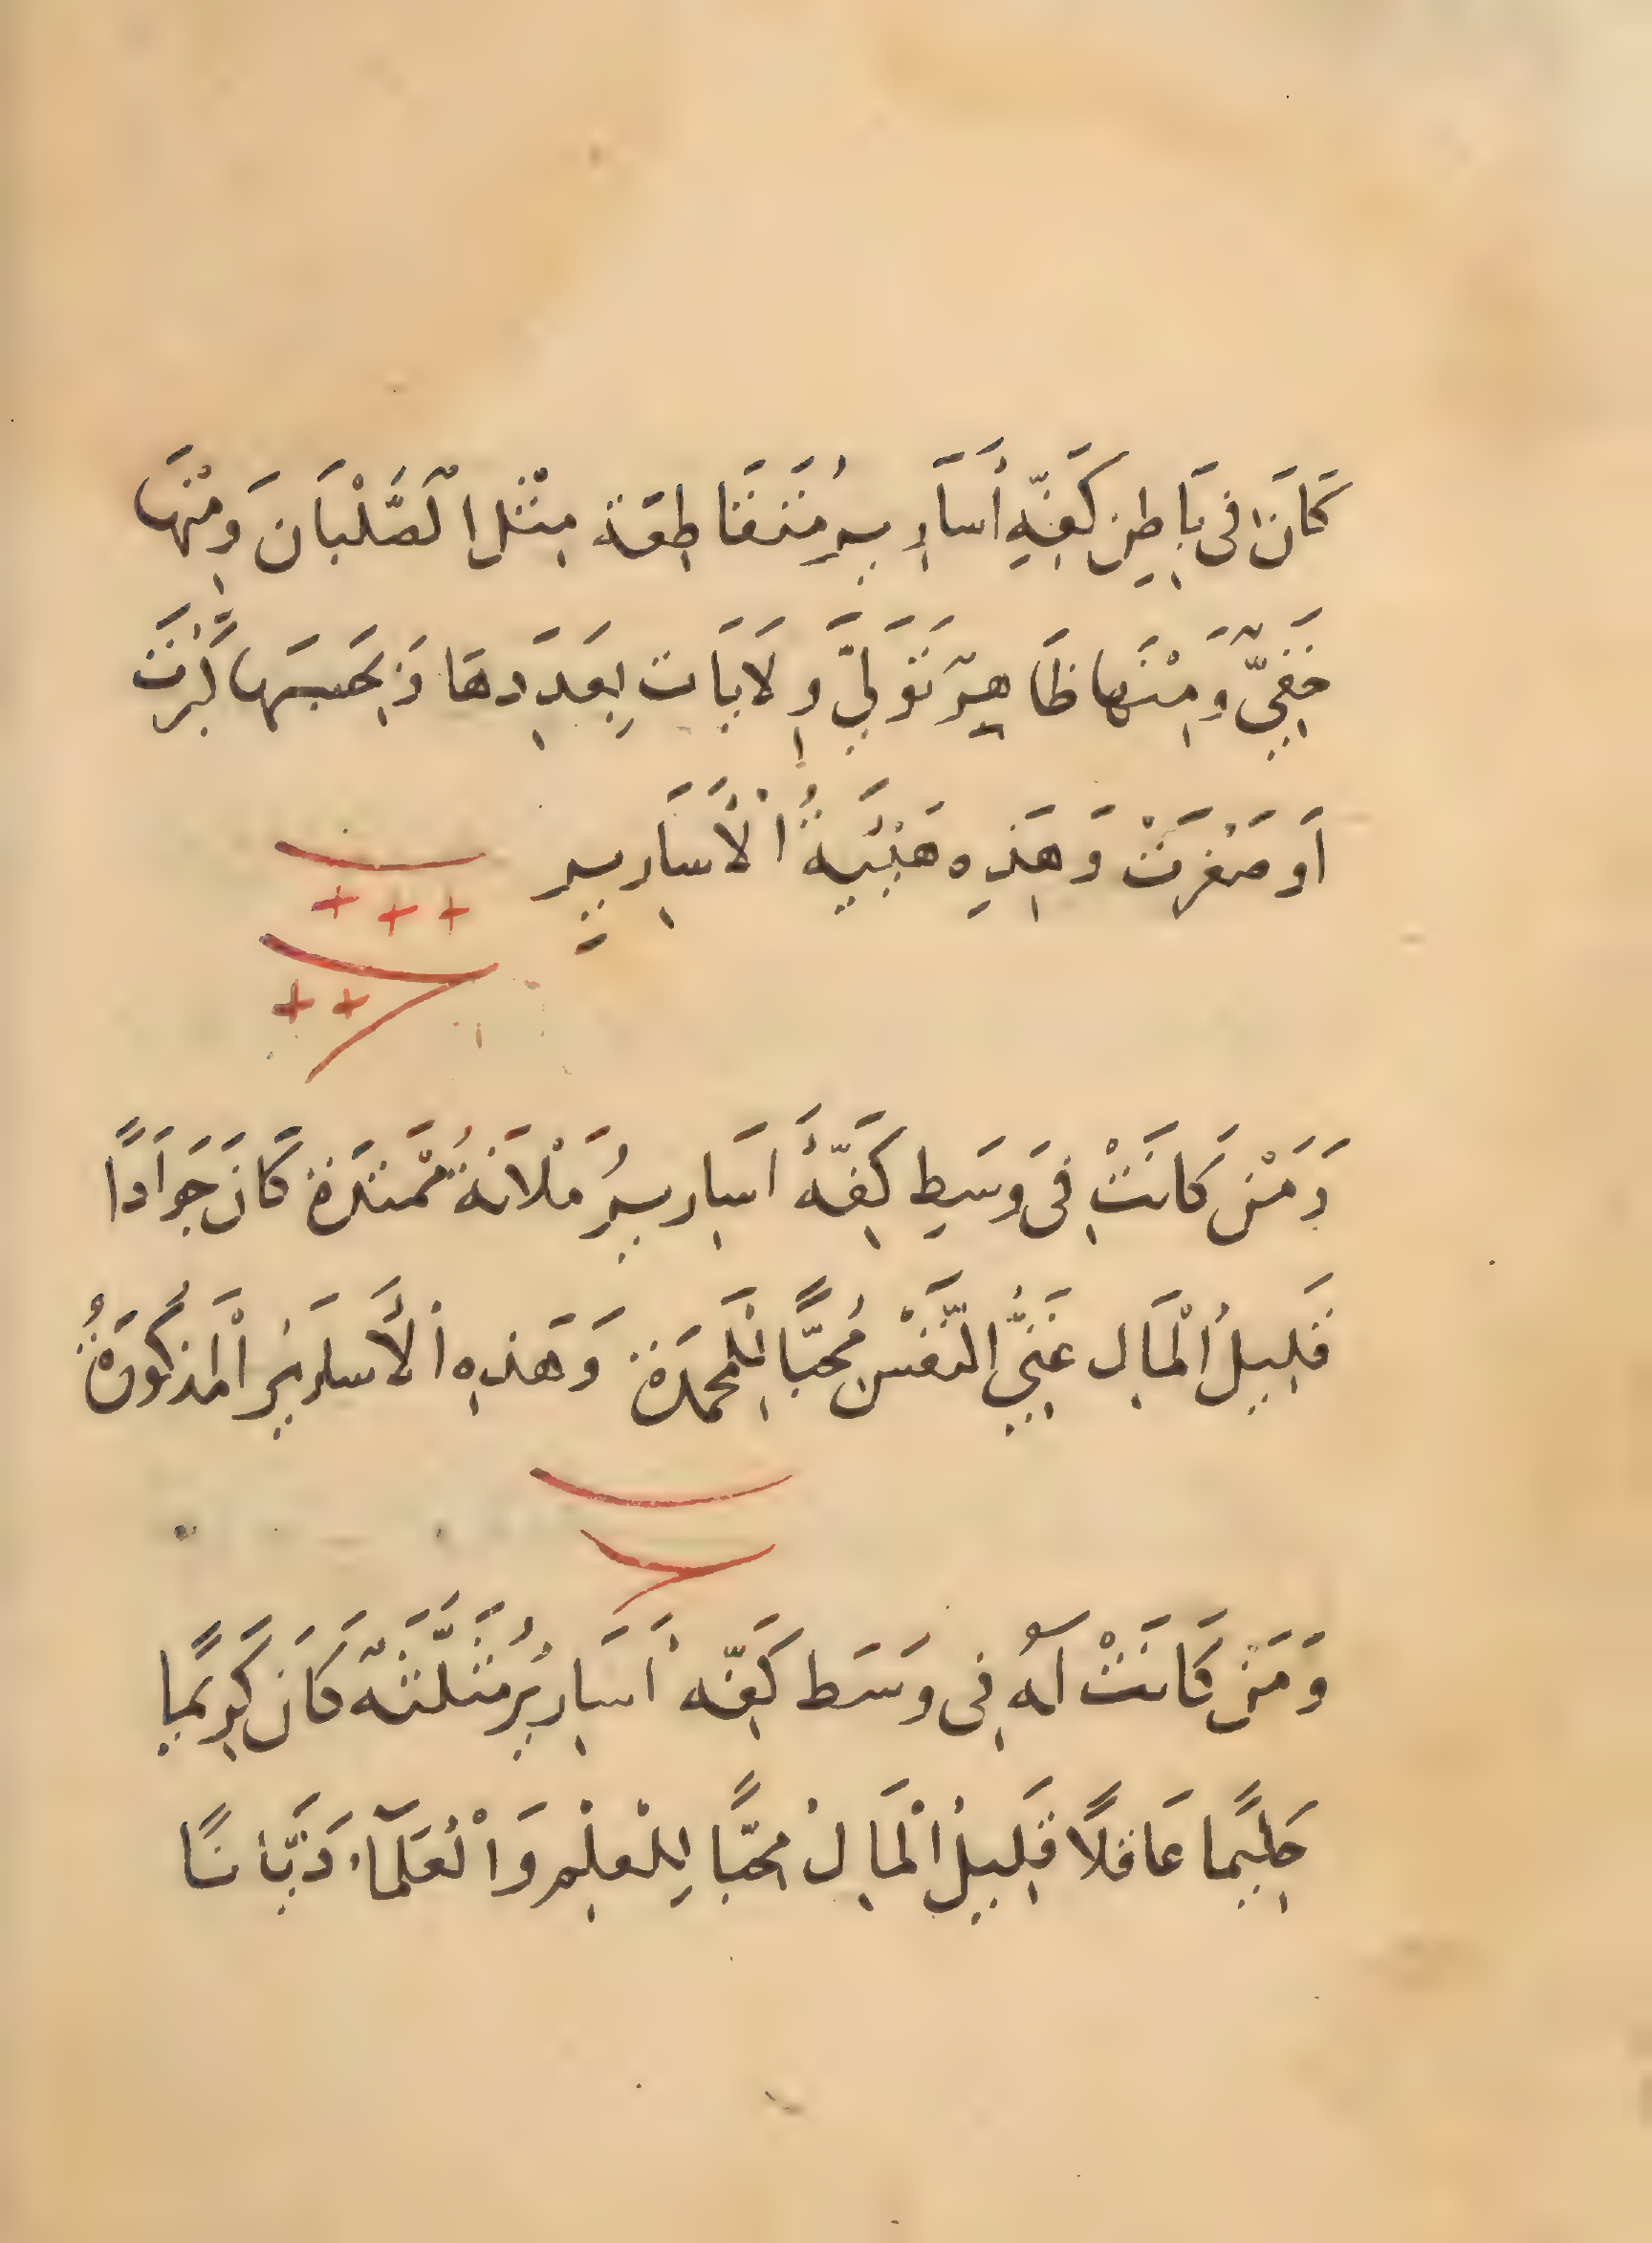 كَانَ فِى بَاطِنِ كَفِّهِ أَسَارِيرٌ مُتَقَاطِعَة مِثْلِ الصُّلْبَان وَمِنْهَا
خَفِيٌّ وَمِنْهَا ظَاهِرٌ تَوَلَّيَ وِلَايَات بِعَدَدِهَا وَبِحَسَبِهَا كَبُرَت
اَو صَغرَتْ وَهَذِهِ هَيْئَيةُ الْأَسَارِيرِ
وَمَنْ كَانَتْ فِى وَسَطِ كَفِّهِ اَسَارِيرُ مَلْانَةُ مُمْتَدَة كَانَ جَوَادًا
قَلِيلُ الْمَالِ غَنِيُّ النَّفْسِ مُحبًّا لِلْمحمدَة وَهَذِهِ الْأَسَارِيرُ الْمَذكُورَةُ
وَمَنْ كَانَتْ لَهُ فِى وَسَط كَفِّه أَسَارِيرُ مُثَلَّثَة كَانَ كَرِيمًا
حَلِيمًا عَاقلًا قَلِيلُ الْمَالِ مُحبًّا لِلْعِلْمِ وَالْعُلَمَآءِ دَيَّانًا